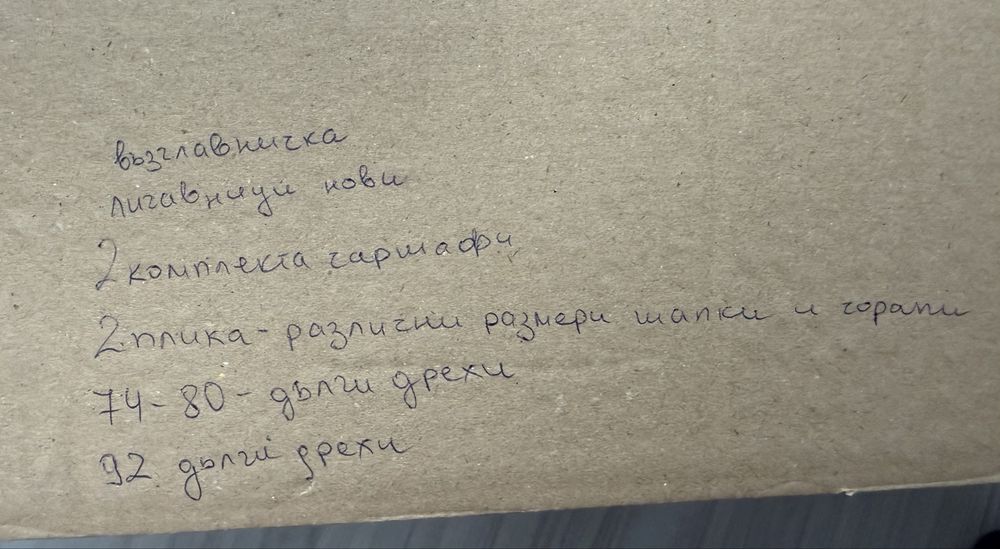 възглавничка
лигавници нови
2 комплекта чаршафи
2 плика - различни размери шапки и чорапи
74 - 80 - дълги дрехи
92 дълги дрехи